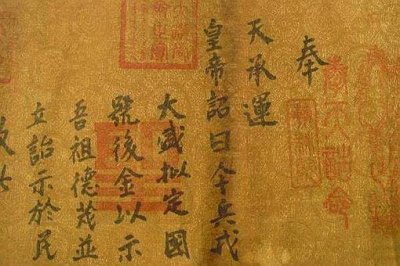 奉
天承運
皇帝詔曰今兵戎
大盛擬定國
號後金以示
吾祖德茂並
立詔示於民